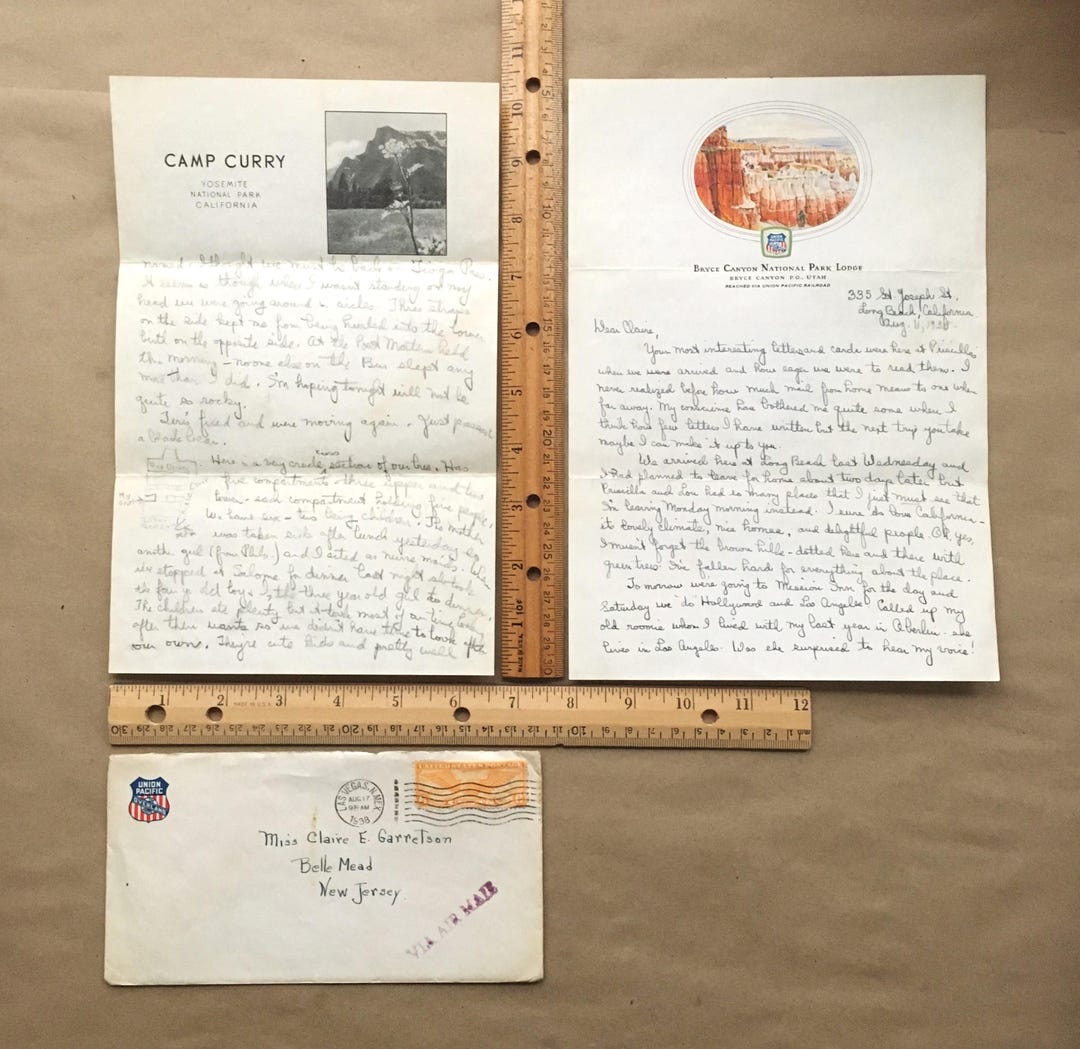 CAMP CURRY
YOSEMITE
NATIONAL PARK
CALIFORNIA
named. I thought we must be back on Tioga Pass.
It seems as though when I wasn't standing on my
head we were going around in circles. Three straps
on the side kept me from being hurled into the lower
birth on the opposite side. At the Post Mortem held
this morning - no one else on the Bus slept any
more than I did. I'm hoping tonight will not be
quite so rocky.
Tire's fixed and we're moving again. Just passed
a black bear.
Here is a very crude cross section of our bus. Has
five compartments - three upper and two
lower - each compartment holding five people,
We have six - two being children. The mother
was taken sick after lunch yesterday so
another girl (from Phila.) and I acted as nurse maids. When
we stopped at Salome for dinner last night she took
the four yr. old boy & I the three year old girl to dinner.
The children ate plenty but it took most of our time looking
after their wants so we didn't have time to look after
our own. They're cute kids and pretty well
UNION
PACIFIC
BRYCE CANYON NATIONAL PARK LODGE
BRYCE CANYON P.O., UTAH
REACHED VIA UNION PACIFIC RAILROAD
335 St. Joseph St.,
Long Beach, California
Aug. 11, 1938
Dear Claire,
Your most interesting letters and cards were here at Priscilla's
when we were arrived and how eager we were to read them. I
never realized before how much mail from home means to one when
far away. My conscience has bothered me quite some when I
think how few letters I have written but the next trip you take
maybe I can make it up to you.
We arrived here at Long Beach last Wednesday and
I had planned to leave for home about two days later but
Priscilla and Lou had so many places that I just must see that
I'm leaving Monday morning instead. I sure do love California -
its lovely climate, nice homes, and delightful people. Oh, yes,
I musn't forget the brown hills - dotted here and there with
green trees. I've fallen hard for everything about the place.
Tomorrow we're going to Mission Inn for the day and
Saturday we "do" Hollywood and Los Angeles. Called up my
old roomie whom I lived with my last year in Oberlin - she
lives in Los Angeles. Was she surprised to hear my voice!
MADE IN U.S.A.
UNION
PACIFIC
OVERLAND
LAS VEGAS, N. MEX.
AUG 17
9 AM
1938
UNITED STATES POSTAGE
Miss Claire E. Garretson
Belle Mead
New Jersey.
VIA AIR MAIL